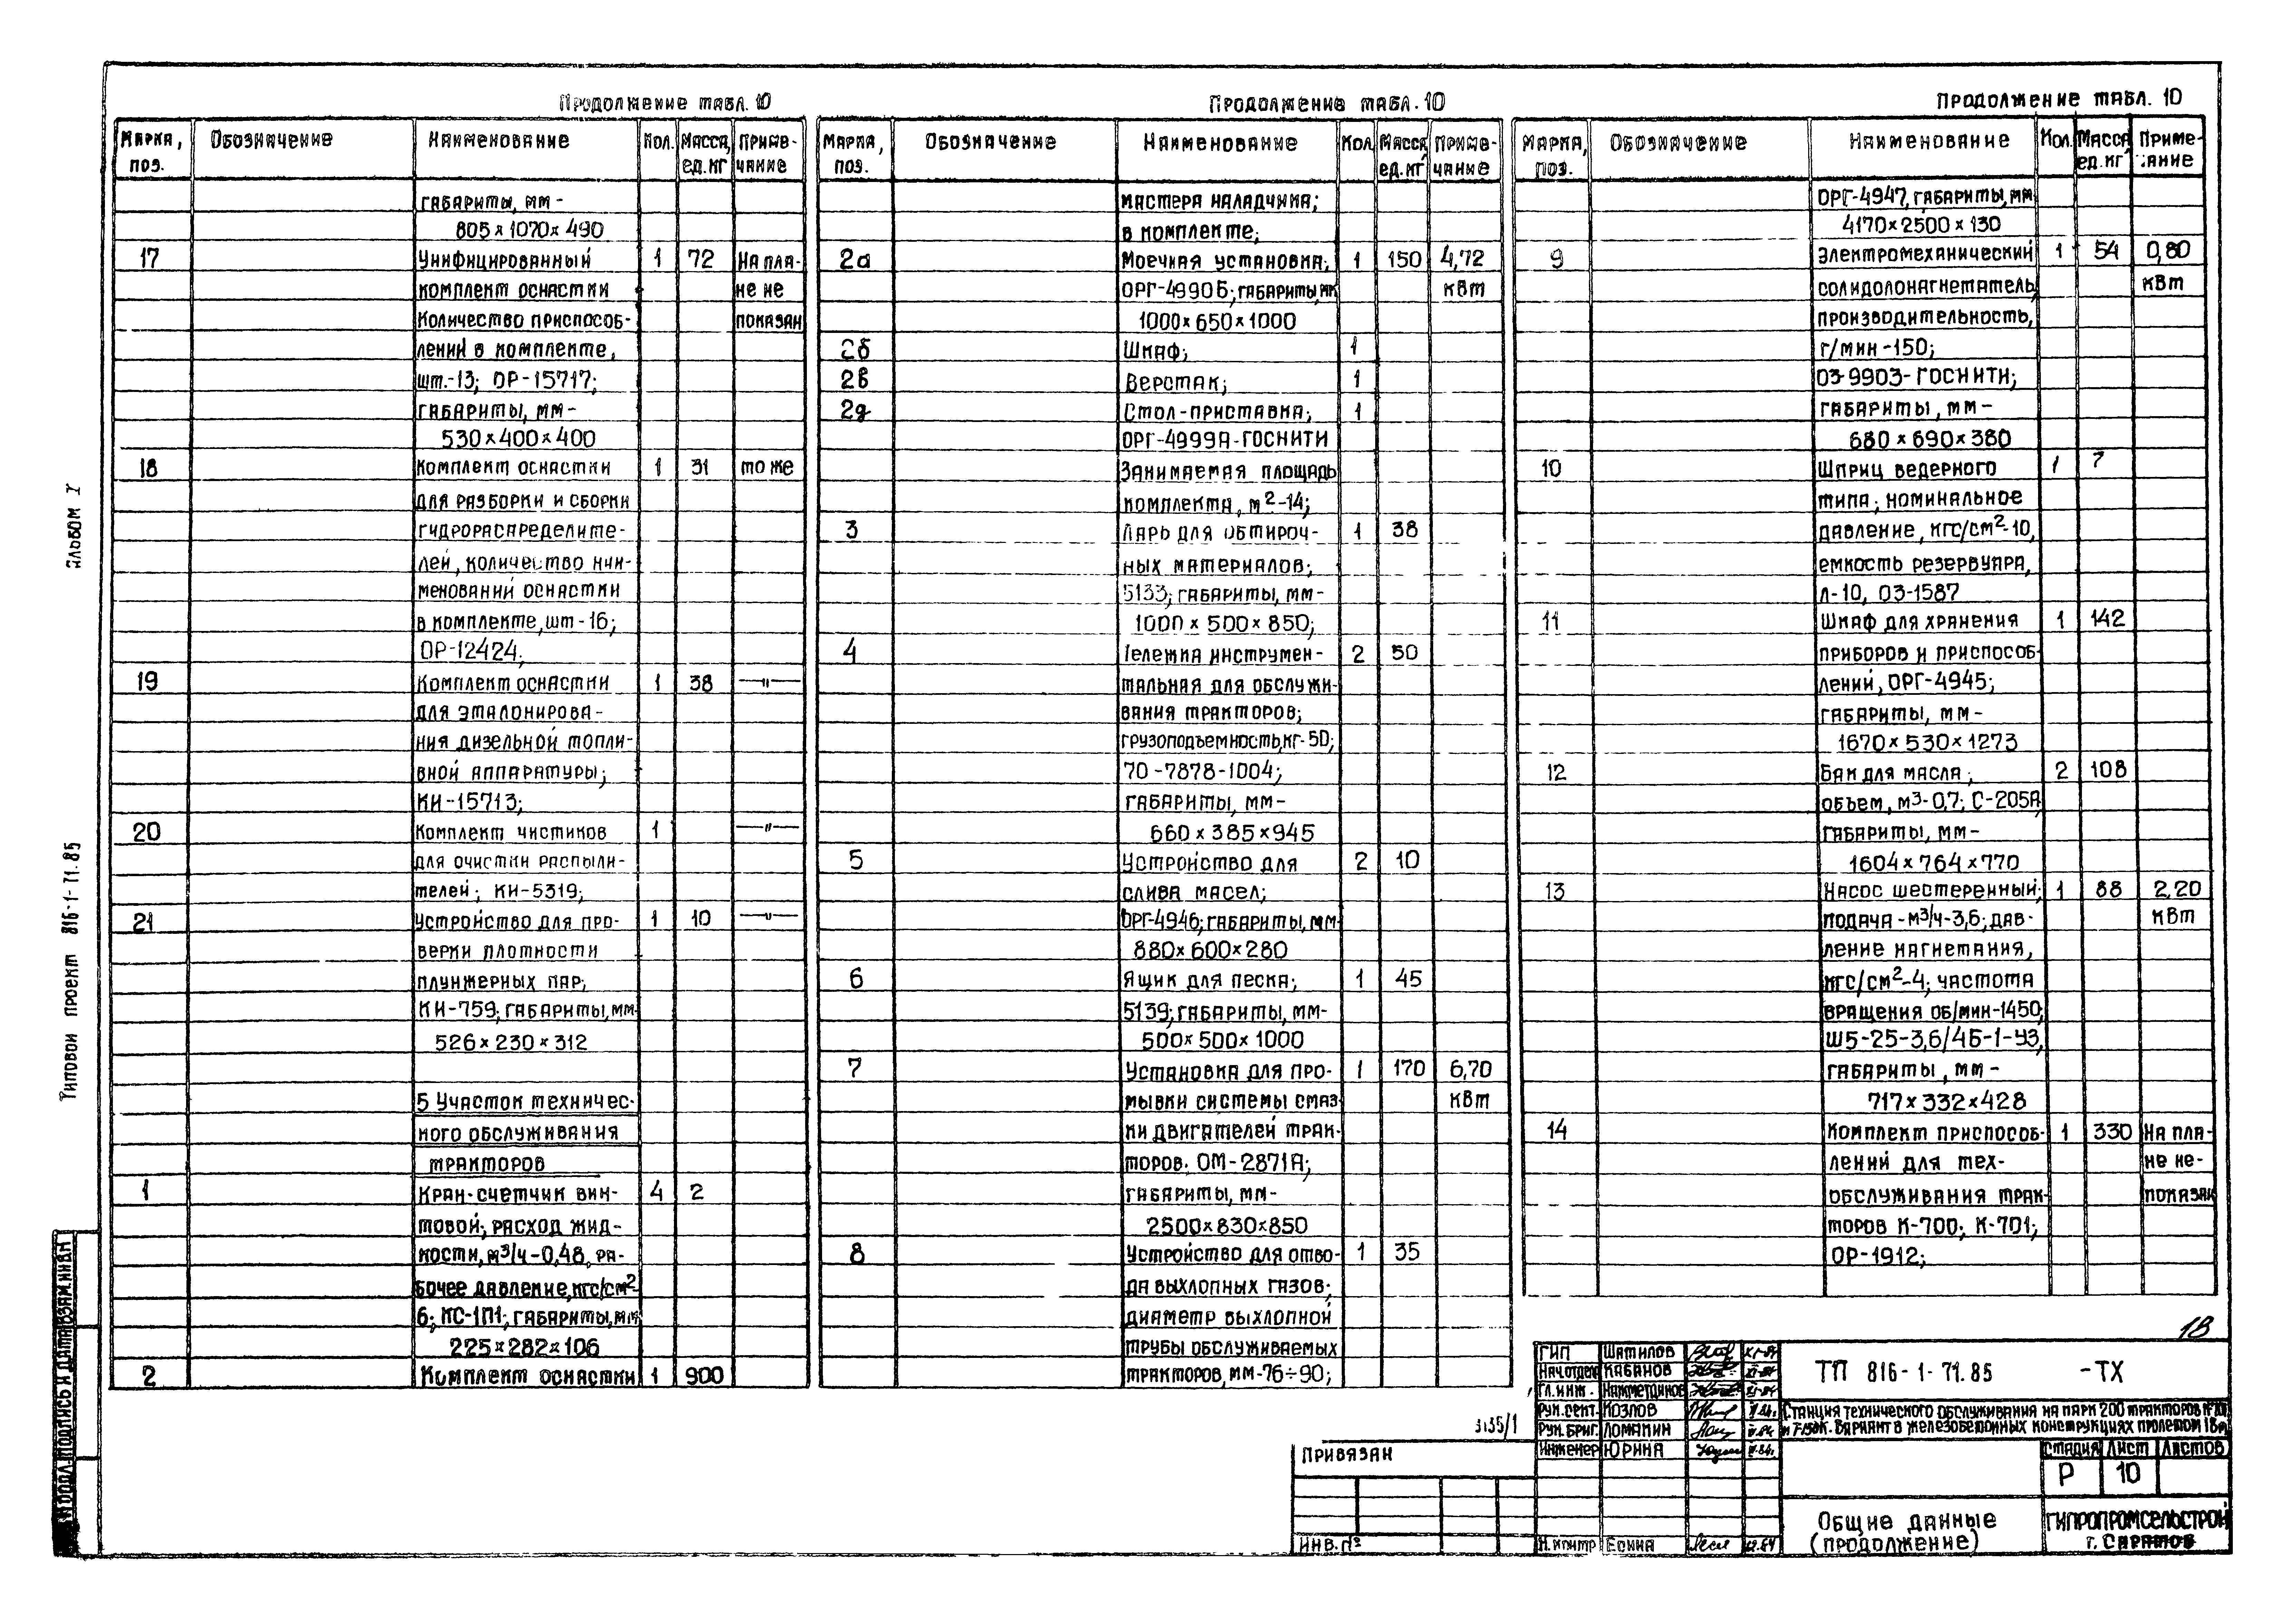 Продолжение табл. 10
Марка, поз. Обозначение Наименование Кол. Масса, ед. кг Приме-чание
габариты, мм -
805 х 1070 х 490
17 Унифицированный 1 72 На пла-
комплект оснастки не не
Количество приспособ- показан
лений в комплекте,
шт.-13; ОР-15717;
габариты, мм -
530 х 400 х 400
18 Комплект оснастки 1 31 то же
для разборки и сборки
гидрораспределите-
лей, количество наи-
менований оснастки
в комплекте, шт-16;
ОР-12424;
19 Комплект оснастки 1 38 —"—
для эталонирова-
ния дизельной топли-
вной аппаратуры;
КИ-15713;
20 Комплект чистиков 1 —"—
для очистки распыли-
телей; КИ-5319;
21 Устройство для про- 1 10 —"—
верки плотности
плунжерных пар;
КИ-759; габариты, мм-
526 х 230 х 312
5 Участок техничес-
кого обслуживания
тракторов
1 Кран-счетчик вин- 4 2
товой; расход жид-
кости, м³/ч-0,48, ра-
бочее давление, кгс/см²-
6; КС-1П1; габариты, мм
225 х 282 х 106
2 Комплект оснастки 1 900
Продолжение табл. 10
Марка, поз. Обозначение Наименование Кол. Масса ед. кг Приме-чание
мастера наладчика;
в комплекте;
2а Моечная установка; 1 150 4,72
ОРГ-4990Б; габариты, мм кВт
1000 х 650 х 1000
2б Шкаф; 1
2в Верстак; 1
2д Стол-приставка; 1
ОРГ-4999А-ГОСНИТИ
Занимаемая площадь
комплекта, м²-14;
3 Ларь для обтироч- 1 38
ных материалов;
5133; габариты, мм-
1000 х 500 х 850;
4 Тележка инструмен- 2 50
тальная для обслужи-
вания тракторов;
грузоподъемность, кг-50;
70-7878-1004;
габариты, мм-
660 х 385 х 945
5 Устройство для 2 10
слива масел;
ОРГ-4946; габариты, мм-
880 х 600 х 280
6 Ящик для песка; 1 45
5139; габариты, мм-
500 х 500 х 1000
7 Установка для про- 1 170 6,70
мывки системы смаз- кВт
ки двигателей трак-
торов. ОМ-2871А;
габариты, мм-
2500 х 830 х 850
8 Устройство для отво- 1 35
да выхлопных газов;
диаметр выхлопной
трубы обслуживаемых
тракторов, мм-76÷90;
Продолжение табл. 10
Марка, поз. Обозначение Наименование Кол. Масса ед. кг Приме-чание
ОРГ-4947, габариты, мм
4170 х 2500 х 130
9 Электромеханический 1 54 0,80
солидолонагнетатель, кВт
производительность,
г/мин-150;
03-9903-ГОСНИТИ;
габариты, мм-
680 х 690 х 380
10 Шприц ведерного 1 7
типа; номинальное
давление, кгс/см²-10,
емкость резервуара,
л-10, 03-1587
11 Шкаф для хранения 1 142
приборов и приспособ-
лений, ОРГ-4945;
габариты, мм-
1670 х 530 х 1273
12 Бак для масла; 2 108
объем, м³-0,7; С-205А
габариты, мм-
1604 х 764 х 770
13 Насос шестеренный; 1 88 2,20
подача-м³/ч-3,6; дав- кВт
ление нагнетания,
кгс/см²-4; частота
вращения об/мин-1450;
Ш5-25-3,6/4Б-1-У3,
габариты, мм-
717 х 332 х 428
14 Комплект приспособ- 1 330 На пла-
лений для тех- не не-
обслуживания трак- показан
торов К-700; К-701;
ОР-1912;
Альбом I
Типовой проект 816-1-71.85
Инв.N подл. Подпись и дата Взам.инв.N
18
ГИП Шатилов XI-84
Нач.отдела Кабанов XI-84
Гл.инж. Нажметдинов XI-84
Рук.сект. Козлов
Рук.бриг. Ломакин
Инженер Юрина
Н.контр
ТП 816-1-71.85 -ТХ
Станция технического обслуживания на парк 200 тракторов
Вариант в железобетонных конструкциях пролетом 18м
Стадия Лист Листов
Р 10
Общие данные
(продолжение)
Гипропромсельстрой
г. Саратов
Привязан
Инв.N°